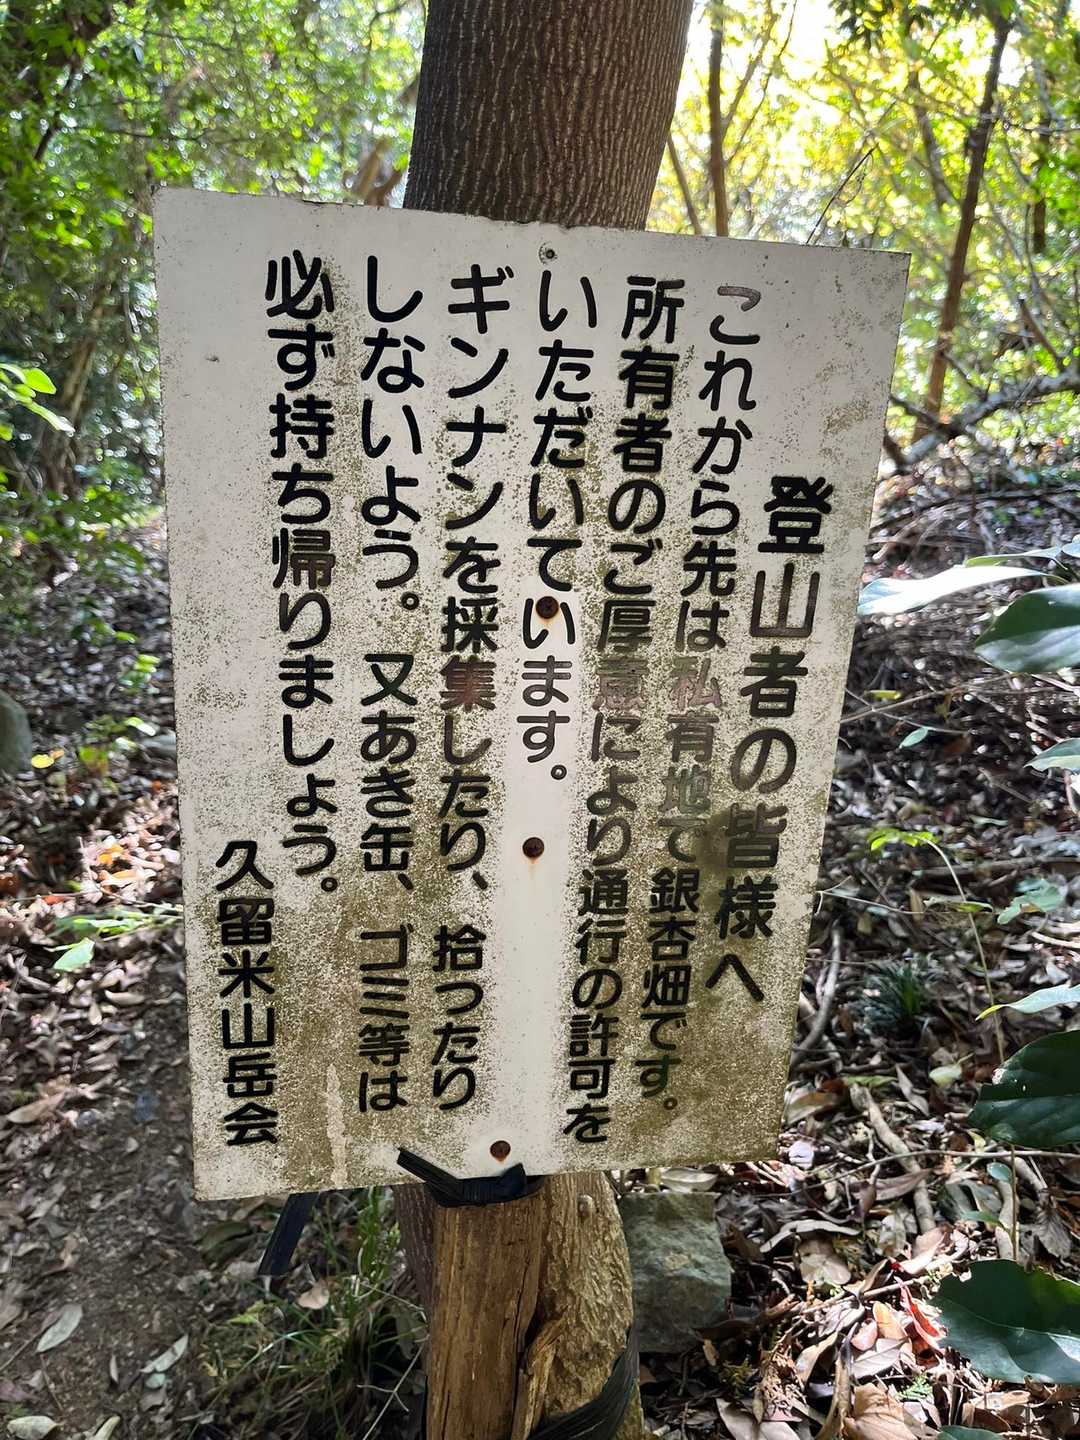 登山者の皆様へ
これから先は私有地で銀杏畑です。
所有者のご厚意により通行の許可を
いただいています。
ギンナンを採集したり、拾ったり
しないよう。又あき缶、ゴミ等は
必ず持ち帰りましょう。
久留米山岳会